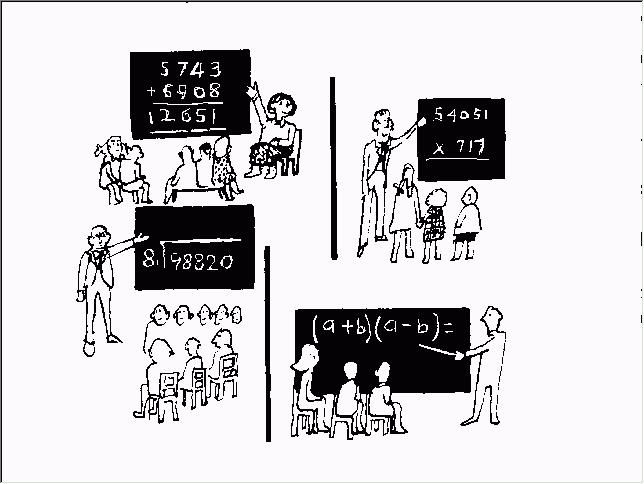 5743
+6908
12651
54051
x 717
8)98820
(a+b)(a-b)=